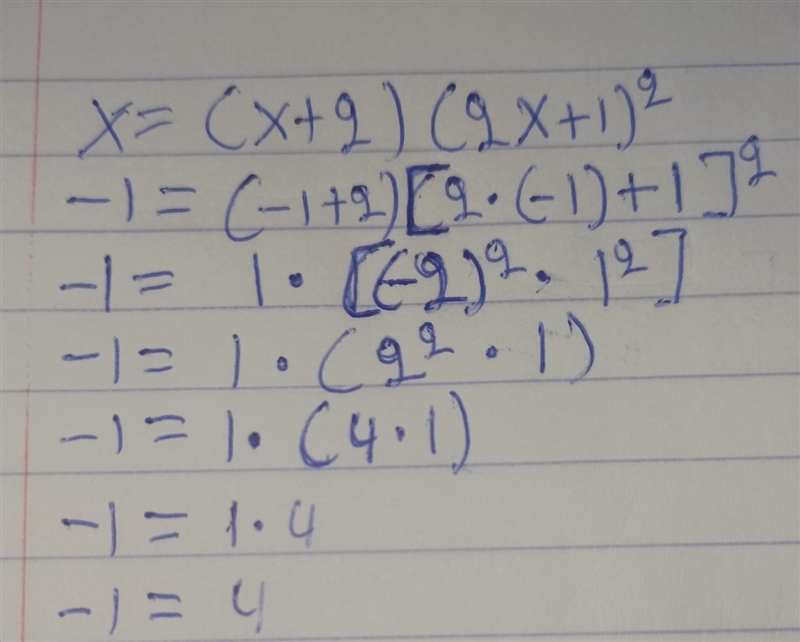 x = (x+2) (2x+1)²
-1 = (-1+2)[2·(-1)+1]²
-1 = 1·[(-2)²·1²]
-1 = 1·(2²·1)
-1 = 1·(4·1)
-1 = 1·4
-1 = 4